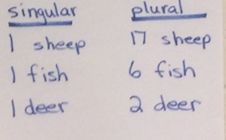 singular plural
1 sheep 17 sheep
1 fish 6 fish
1 deer 2 deer